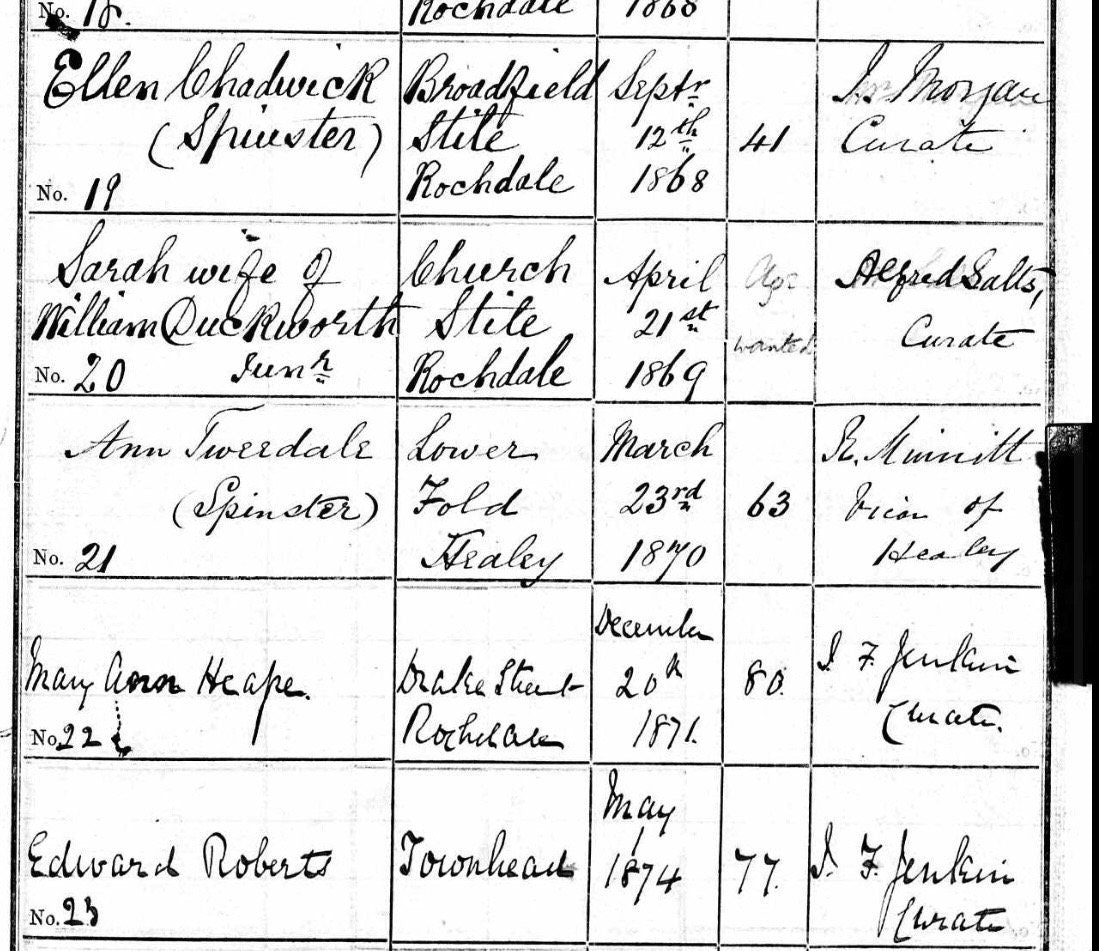 No. 18. Rochdale 1868
Ellen Chadwick
(Spinster)
No. 19
Broadfield
Stile
Rochdale
Septr
12th
1868
41
Js Morgan
Curate
Sarah wife of
William Duckworth
Junr
No. 20
Church
Stile
Rochdale
April
21st
1869
Age
wanted
Alfred Salts,
Curate
Ann Tweedale
(Spinster)
No. 21
Lower
Fold
Healey
March
23rd
1870
63
R. Minnitt
Vicar of
Healey
Mary Ann Heape.
No. 22
Drake Street
Rochdale
December
20th
1871.
80.
J F Jenkin
Curate.
Edward Roberts
No. 23
Townhead
May
1
1874
77.
J. F. Jenkin
Curate